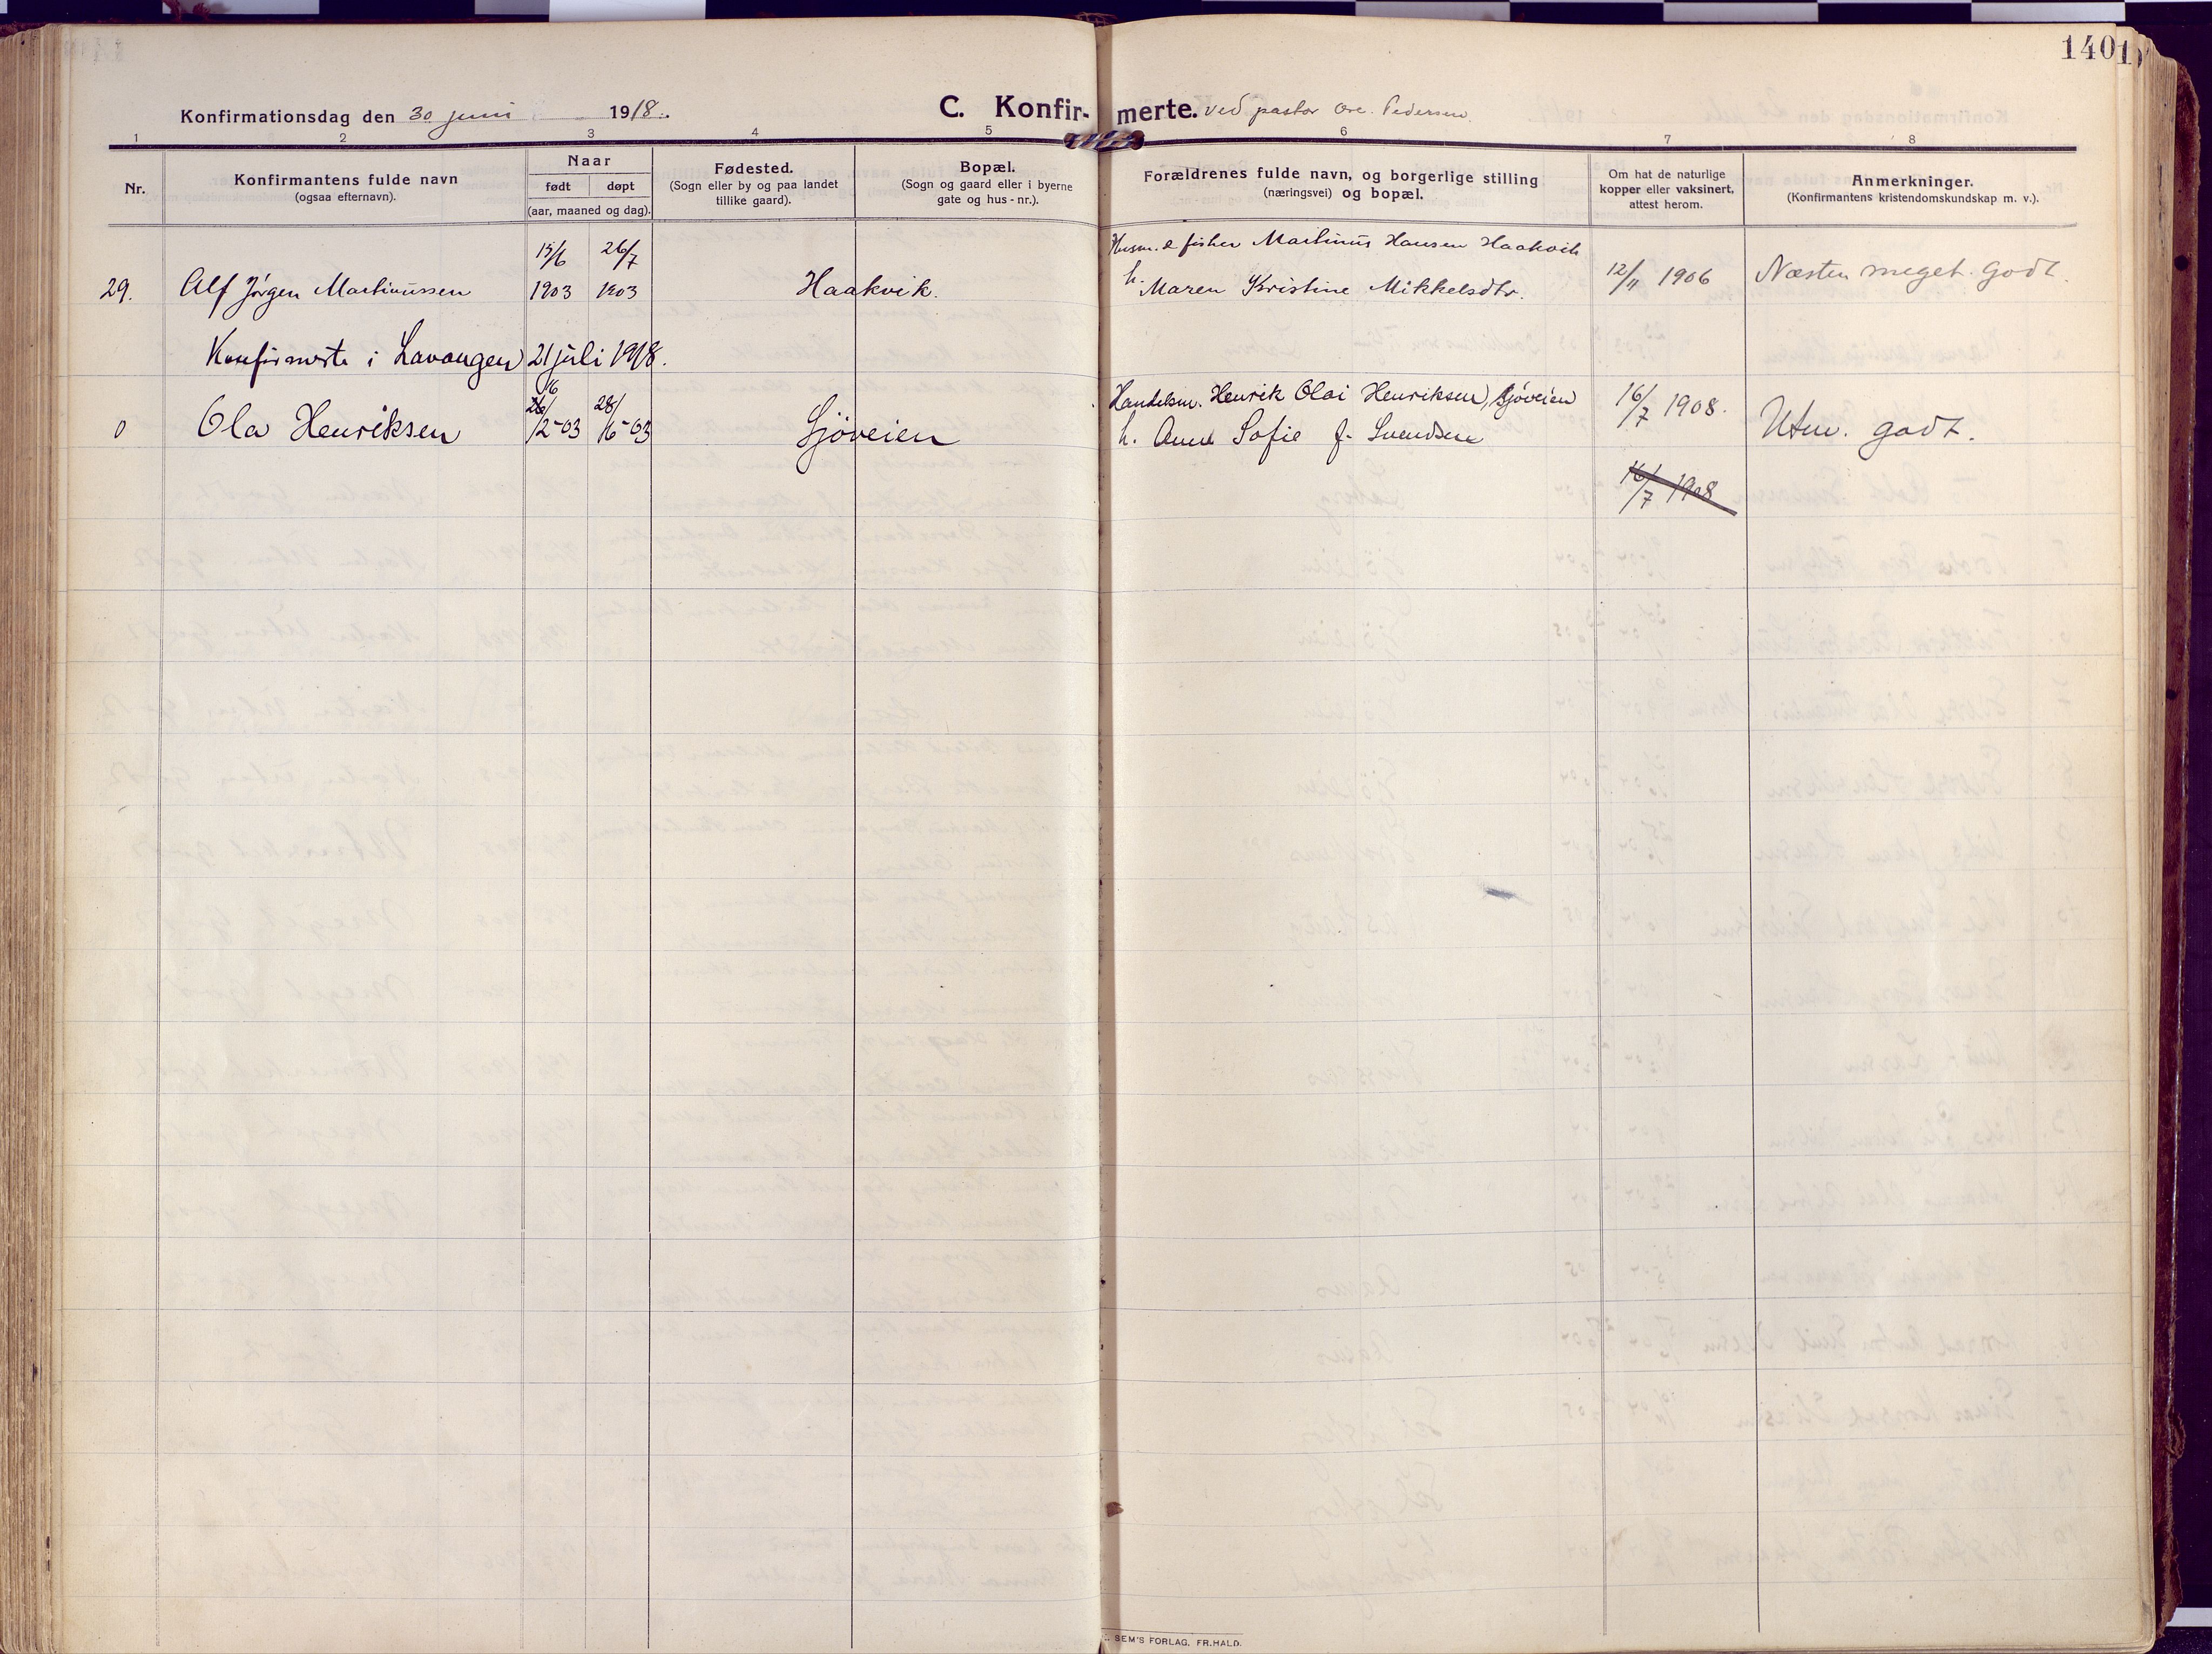 140
Konfirmationsdag den 30 juni 1918.
C. Konfirmerte. ved pastor Ove. Pedersen.
1 2 3 4 5 6 7 8
Nr.
Konfirmantens fulde navn
(ogsaa efternavn).
Naar
født døpt
(aar, maaned og dag).
Fødested.
(Sogn eller by og paa landet
tillike gaard).
Bopæl.
(Sogn og gaard eller i byerne
gate og hus-nr.).
Forældrenes fulde navn, og borgerlige stilling
(næringsvei) og bopæl.
Om hat de naturlige
kopper eller vaksinert,
attest herom.
Anmerkninger.
(Konfirmantens kristendomskundskap m. v.).
15/6 26/7 Husm. & fisker Martinus Hansen Haakvik
29. Alf Jörgen Martinussen 1903 1903 Haakvik. h. Maren Kristine Mikkelsdtr. 12/11 1906 Næsten meget godt.
Konfirmerte i Lavangen 21 juli 1918.
16
26/2-03 28/6-03 Handelsm. Henrik Olai Henriksen, Sjöveien 16/7 1908.
0 Ola Henriksen Sjöveien h. Anne Sofie f. Svendsen Utm. godt.
16/7 1908
SEM'S FORLAG, FR. HALD.